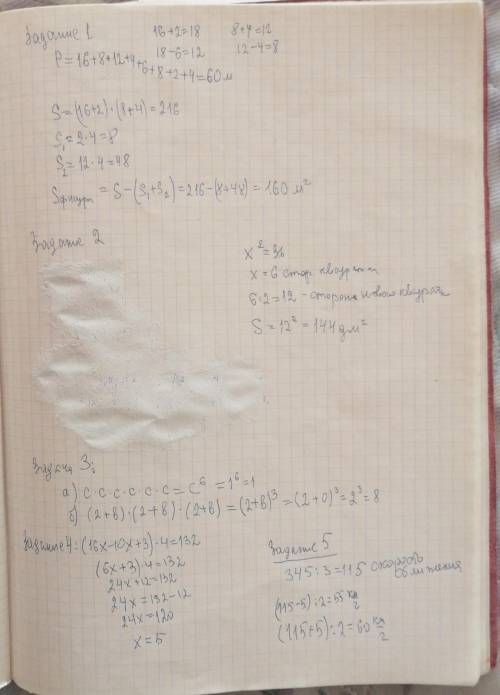 Задание 1
16+2=18 8+4=12
18-6=12 12-4=8
P=16+8+12+4+6+8+2+4=60м
S=(16+2)·(8+4)=216
S₁=2·4=8
S₂=12·4=48
Sфигуры = S-(S₁+S₂)=216-(8+48)=160 м²
Задание 2
x²=36
x=6 стор. квадрата
6·2=12 - сторона нового квадрата
S=12²=144 дм²
Задача 3:
а) c·c·c·c·c·c=c⁶=1⁶=1
б) (2+b)·(2+b)·(2+b)=(2+b)³=(2+0)³=2³=8
Задание 4: (16x-10x+3)·4=132
(6x+3)·4=132
24x+12=132
24x=132-12
24x=120
x=5
Задание 5
345:3=115 скорость сближения
(115-5):2=55 км/2
(115+5):2=60 км/2